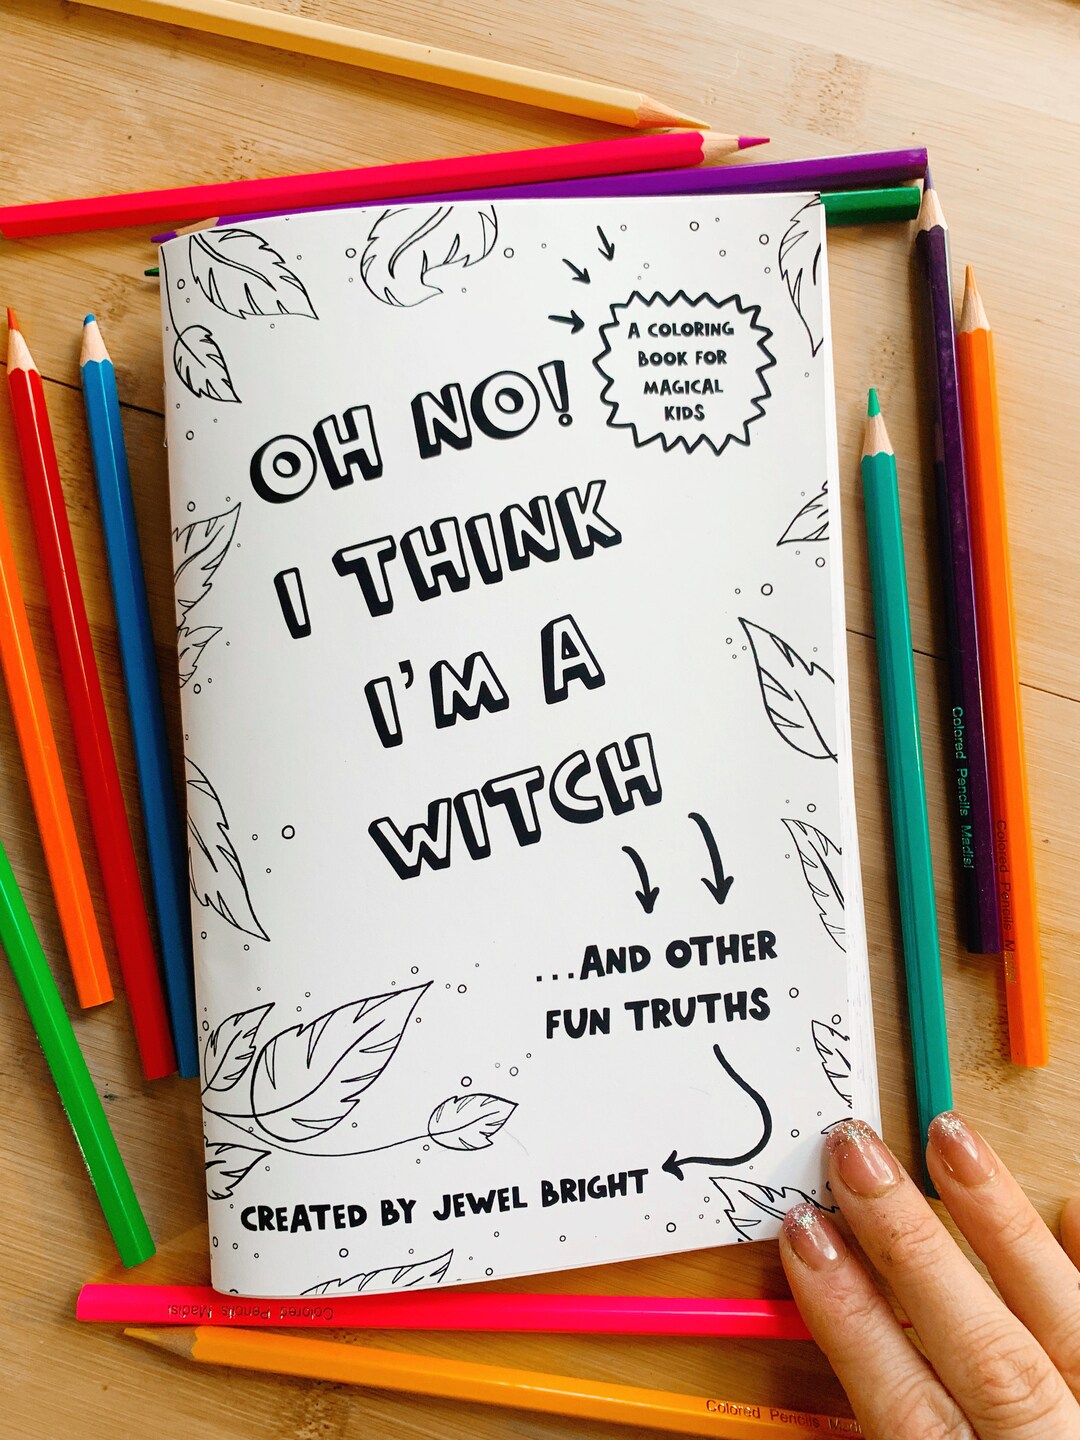 A COLORING
BOOK FOR
MAGICAL
KIDS
OH NO!
I THINK
I'M A
WITCH
...AND OTHER
FUN TRUTHS
CREATED BY JEWEL BRIGHT
Colored Pencils Madisi
Colored Pencils M
Colored Pencils Madisi
Colored Pencils Madi